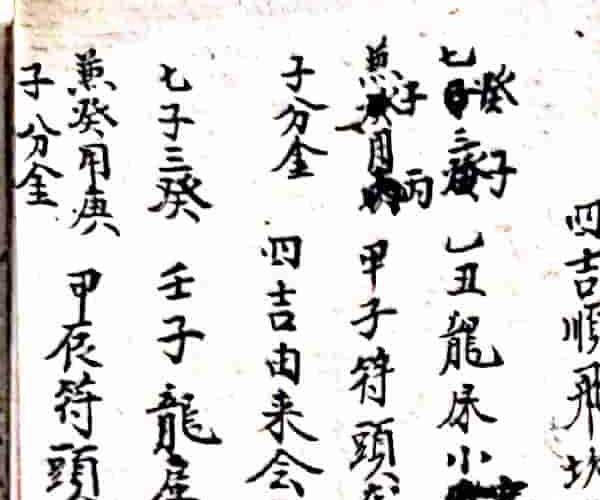 四吉順飛坎
七子三癸 乙丑龍尿小
兼癸用丙 甲子符頭
子分金 四吉由来会
七子三癸 壬子龍
兼癸用庚 甲辰符頭
子分金